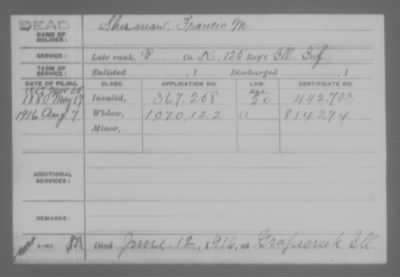 DEAD
NAME OF SOLDIER: Sherman, Francis M.
SERVICE: Late rank, P Co. K, 120 Reg't Ill. Inf.
TERM OF SERVICE: Enlisted , 1 Discharged , 1
DATE OF FILING. CLASS. APPLICATION NO. LAW. CERTIFICATE NO.
1880 May 17 Invalid, 367,258 442,703
1916 Aug 7 Widow, 1070,122 814294
Minor,
ADDITIONAL SERVICES:
REMARKS:
Died June 12, 1916, at Ill.